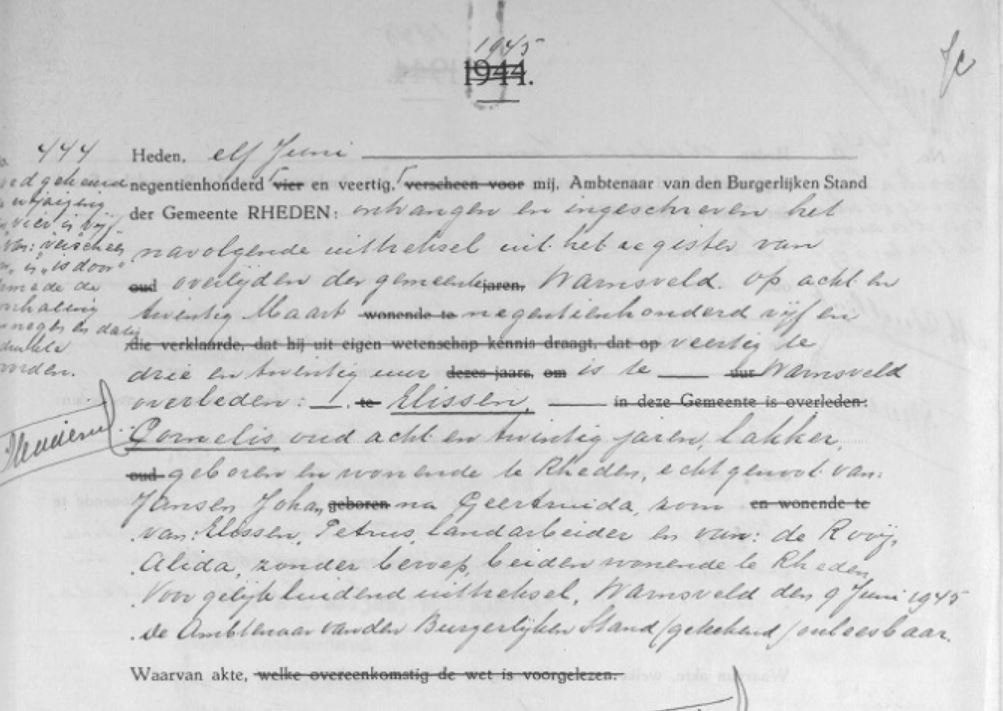 1945
1944.
444
Heden, elf Juni
negentienhonderd vier en veertig, verscheen voor mij, Ambtenaar van den Burgerlijken Stand
der Gemeente RHEDEN: ontvangen en ingeschreven het
navolgende uittreksel uit het register van
oud overlijden der gemeente jaren, Warnsveld. Op acht en
twintig Maart wonende te negentienhonderd vijf en
die verklaarde, dat hij uit eigen wetenschap kennis draagt, dat op veertig te
drie en twintig uur dezes jaars, om is te uur Warnsveld
overleden: te Elissen, in deze Gemeente is overleden:
Cornelis oud acht en twintig jaren, lakker,
oud geboren en wonende te Rheden, echtgenoot van:
Jansen Johan geboren na Geertruida, zoon en wonende te
van: Elissen, Petrus, landarbeider en van: de Rooij,
Alida, zonder beroep, beiden wonende te Rheden
Voor gelijkluidend uittreksel, Warnsveld den 9 Juni 1945
de Ambtenaar van den Burgerlijken Stand (getekend) onleesbaar.
Waarvan akte, welke overeenkomstig de wet is voorgelezen.